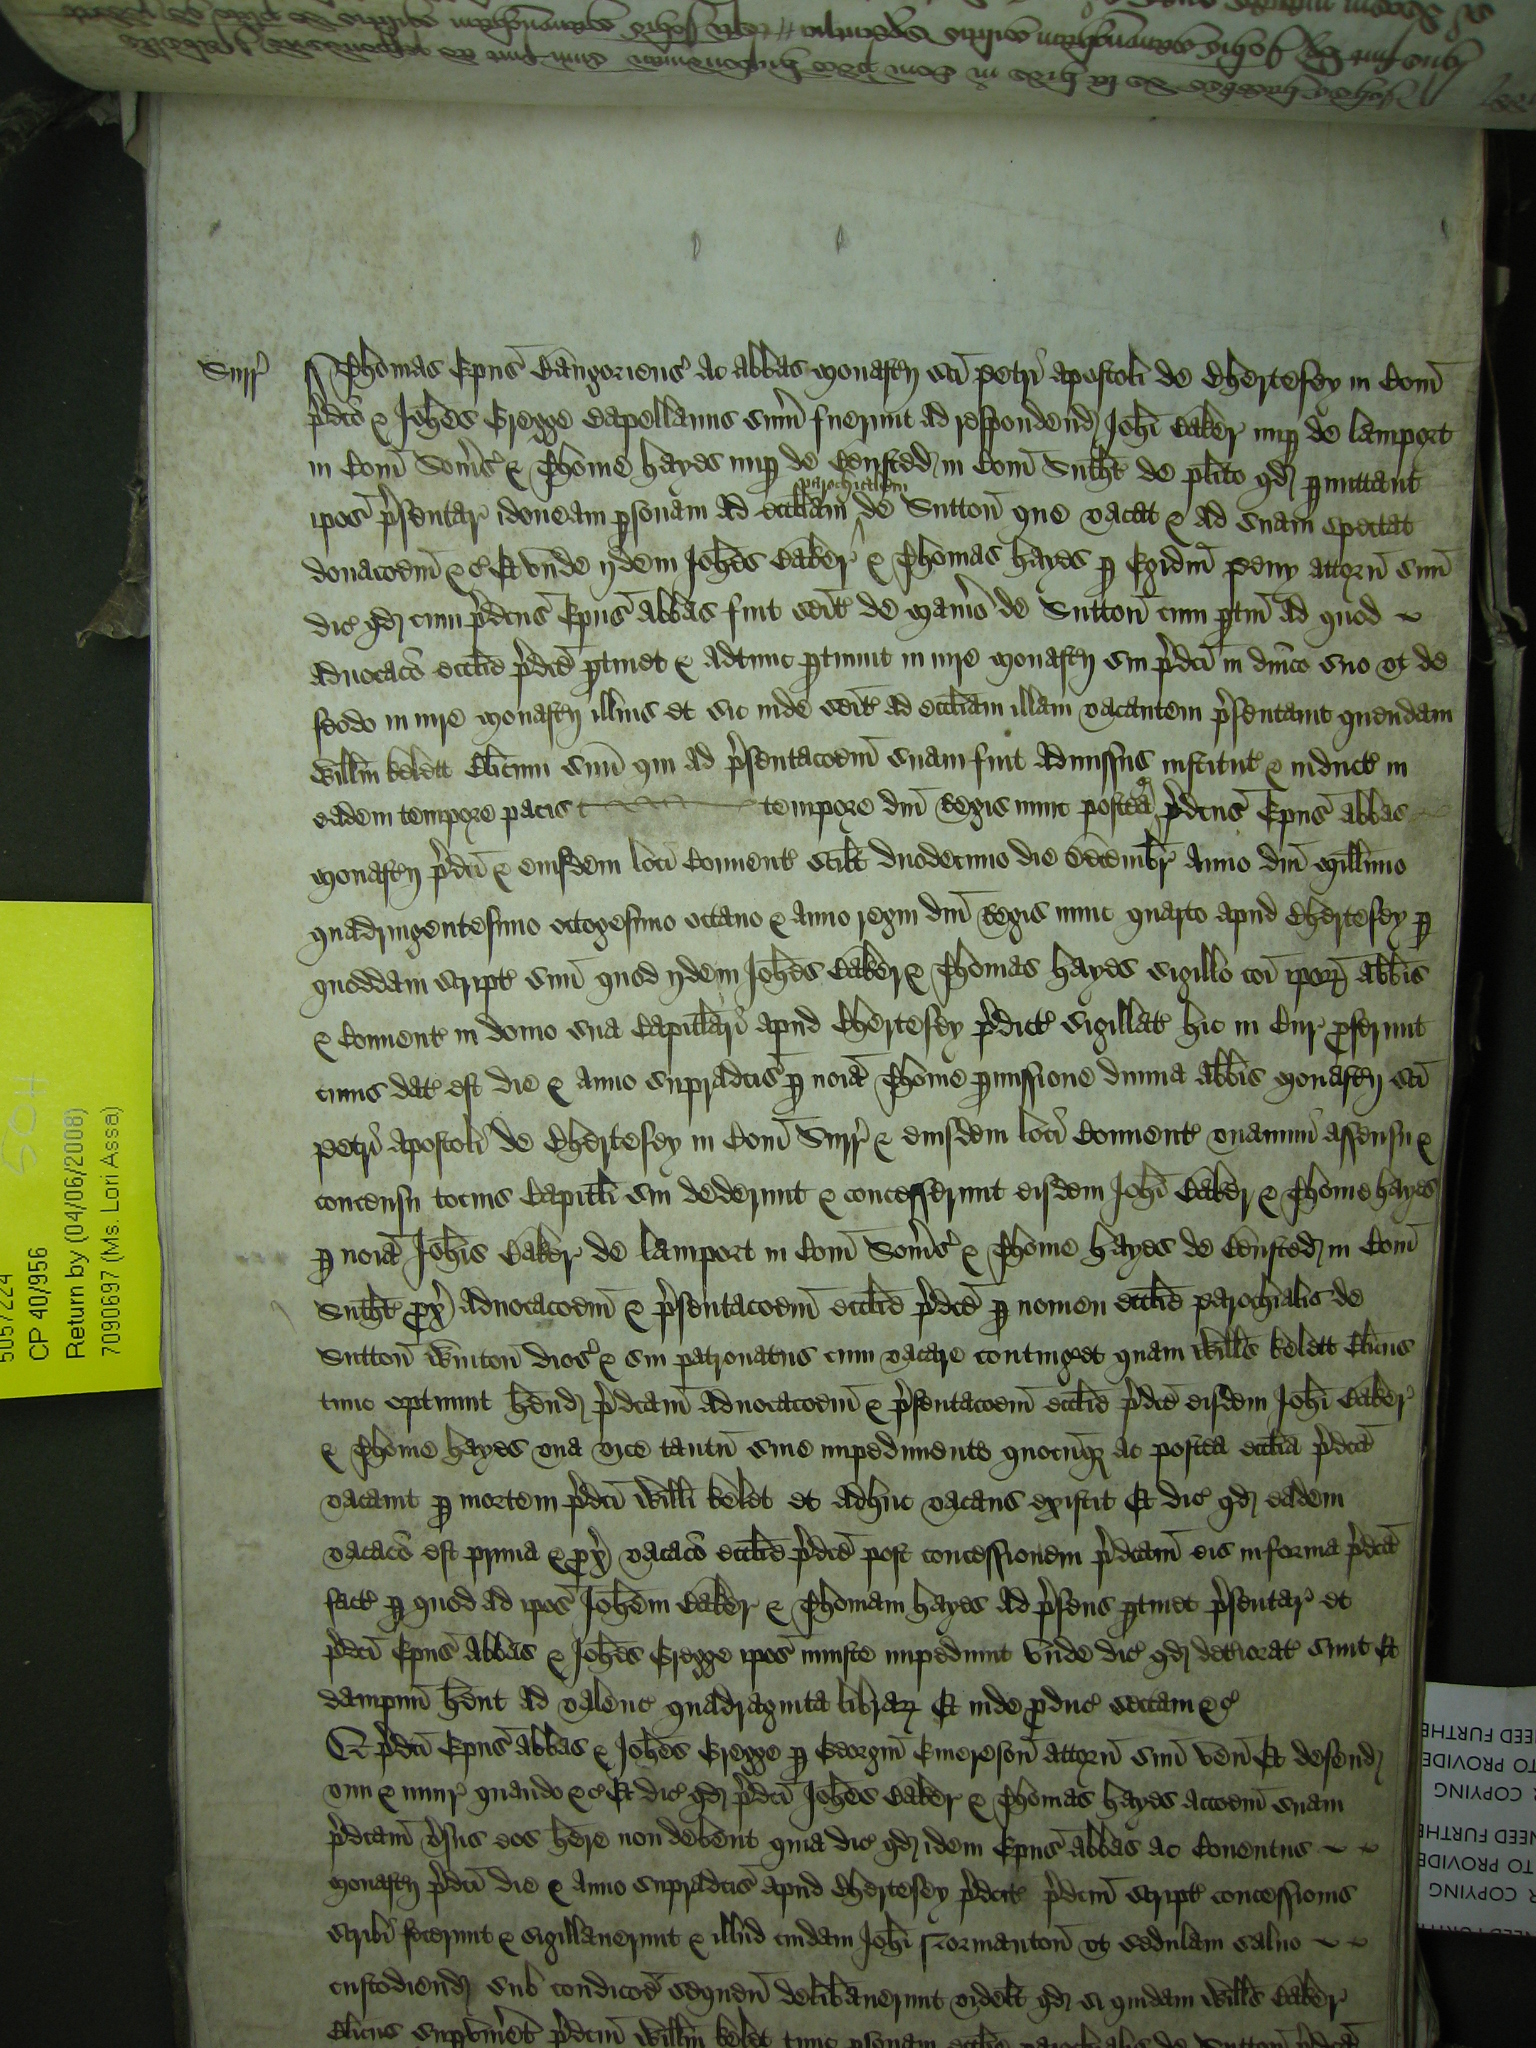 Surr' Thomas Ep̄us Bangoriens' ac abbas Monast'ij sc̄i Petri apostoli de Chertesey in Com̄
p̄dc̄o & Joh̄es Gregge Capellanus sum̄ fuerunt ad respondend' Joh̄i Baker nup̱ de lamport
in Com̄ Som̄s' & Thome hayes nup̱ de Bensted' in Com̄ Suth̄t de pl̄ito qd' p̱mittant
ip̄os p̄sentar' idoneam p̱sonam ad eccl̄iam parochialem de Sutton̄ que vacat & ad suam spectat
donac̄oem̄ &c' Et vnde ijdem Joh̄es Baker & Thomas hayes p̱ Egidiu̅ Peny attorn̄ suu̅
dic' qd' cum p̄dc̄us Ep̄us Abbas fuit seit' de Man̄io de Sutton̄ cum p̱tin̄ ad quod
aduocac̄o eccl̄ie p̄dc̄e p̱tinet & adtunc p̱tinuit in iure Monast'ij sui p̄dc̄i in dn̄ico suo vt de
feodo in iure Monast'ij illius et sic inde seit' ad eccl̄iam illam vacantem p̄sentauit quendam
Will̄m kelett Cl̄icum suu̅ qui ad p̄sentac̄oem̄ suam fuit admissus institut' & induct' in
eadem tempore pacis tempore dn̄i Regis nunc postea p̄dc̄us Ep̄us Abbas
Monast'ij p̄dc̄i & eiusdem loci Conuent' scil̄t duodecimo die Decembr' Anno dn̄i Mill̄imo
quadringentesimo octogesimo octauo & anno regni dn̄i Regis nunc quarto apud Chertesey p̱
quoddam script' suu̅ quod ijdem Joh̄es Baker & Thomas hayes sigillo coi̅ ip̄or' Abb̄is
& Conuent' in domo sua Capitl̄ari apud Chertesey p̄dict' sigillat' hic in Cur' p̱ferunt
cuius dat' est die & anno supradc̄is p̱ noi̅a Thome p̱missione diuina Abb̄is Monast'ij sc̄i
Petri apostoli de Chertesey in Com̄ Surr' & eiusdem loci Conuent' vnanimi assensu &
concensu tocius Capitl̄i sui dederunt & concesserunt eisdem Joh̄i Baker & Thome hayes
p̱ noi̅a Joh̄is Baker de lamport in Com̄ Som̄s' & Thome hayes de Bensted' in Com̄
Suth̄t p̱x' aduocac̄oem̄ & p̄sentac̄oem̄ eccl̄ie p̄dc̄e p̱ nomen eccl̄ie parochialis de
Sutton̄ Winton̄ dioc' & sui patronatus cum vacare conting'et quam Will̄s kelett Cl̄icus
tunc optinuit h̄end' p̄dc̄am aduocac̄oem̄ & p̄sentac̄oem̄ eccl̄ie p̄dc̄e eisdem Joh̄i Baker
& Thome hayes vna vice tantu̅ sine impedimento quocu̅q' ac postea eccl̄ia p̄dc̄a
vacauit p̱ mortem p̄dc̄i Will̄i kelet et adhuc vacans existit Et dic' qd' eadem
vacac̄o est prima & p̱x' vacac̄o eccl̄ie p̄dc̄e post concessionem p̄dc̄am eis in forma p̄dc̄a
fact' p̱ quod ad ip̄os Joh̄em Baker & Thomam hayes ad p̄sens p̱tinet p̄sentar' et
p̄dc̄i Ep̄us Abbas & Joh̄es Gregge ip̄os iniuste impediunt vnde dic' qd' det'iorat' sunt Et
dampnu̅ h̄ent ad valenc' quadraginta librar' Et inde p̱duc' sectam &c'
Et p̄dc̄i Ep̄us Abbas & Joh̄es Gregge p̱ Georgiu̅ Emereson̄ attorn̄ suu̅ ven̄ Et defend'
vim & iniur' quando &c' Et dic' qd' p̄dc̄i Joh̄es Baker & Thomas hayes acc̄oem̄ suam
p̄dc̄am v'sus eos h̄ere non debent quia dic' qd' idem Ep̄us Abbas ac Conentus
Monast'ij p̄dc̄i die & anno supradc̄is apud Chertesey p̄dc̄t' p̄dc̄m̄ script' concessionis
scribi fecerunt & sigillauerunt & illud cuidam Joh̄i Normanton̄ vt sedulam saluo
custodiend' sub condic̄oe sequen̄ delib̄auerunt videl̄t qd' si quidam Will̄s Baker
Cl̄icus sup̱vix̄et p̄dc̄m̄ Will̄m kelet tunc p̱sonam eccl̄ie parochialis de Sutton̄ p̄dc̄a
5057224
CP 40/956
Return by (04/06/2008)
7090697 (Ms. Lori Assa)
NEED FURTHE
TO PROVIDE
COPYING
NEED FURTHE
TO PROVIDE
R COPYING